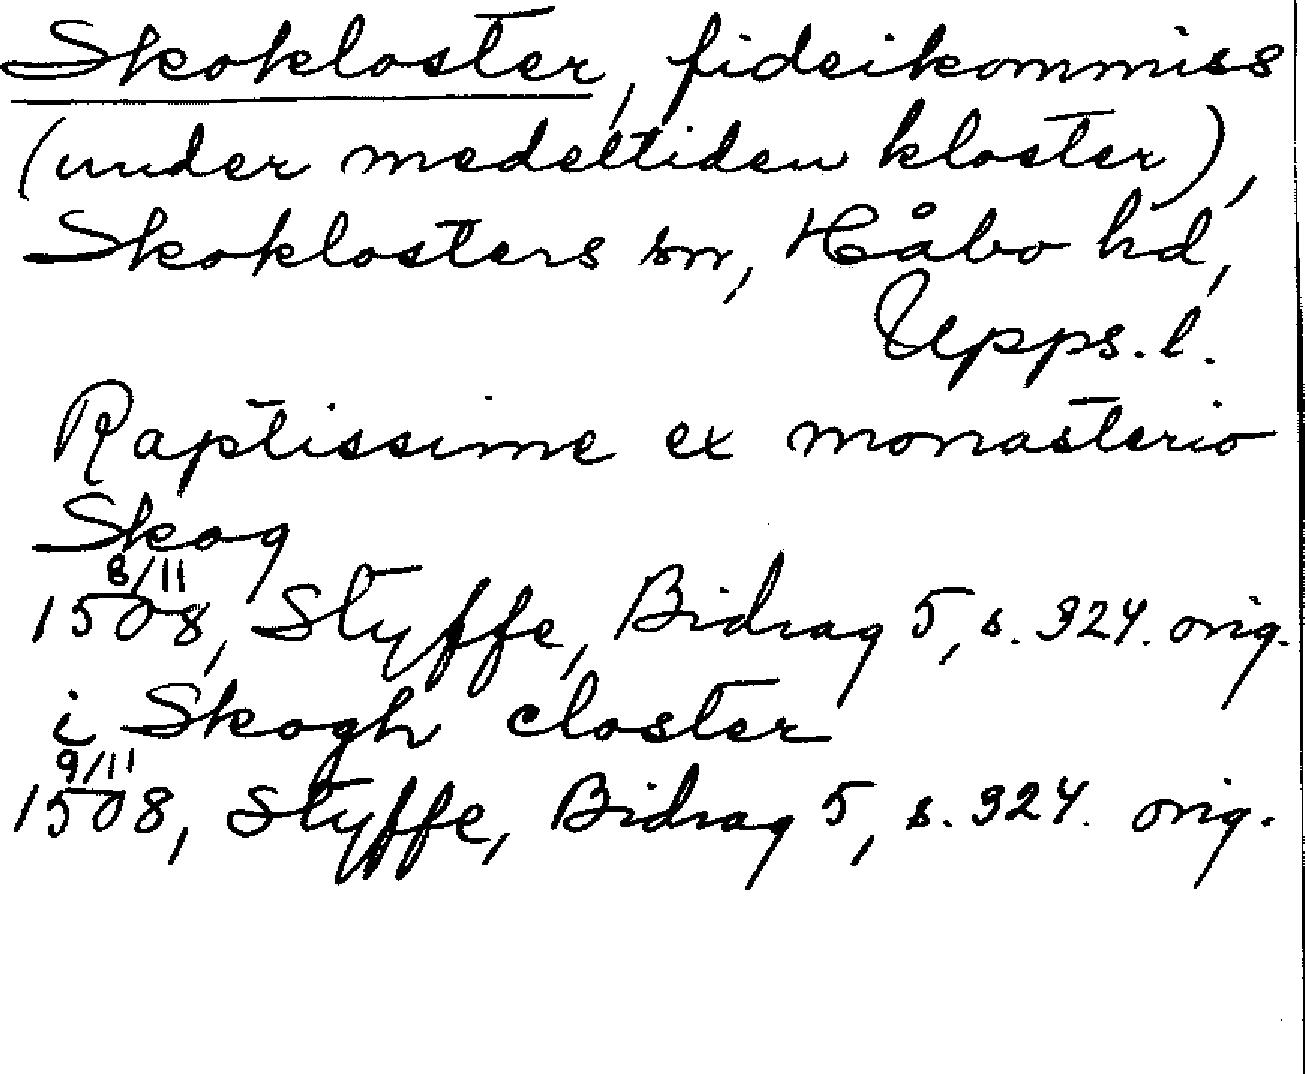 Skokloster, fideikommiss
(under medeltiden kloster),
Skoklosters sn, Håbo hd,
Upps. l.
Raptissime ex monasterio
Skog
8/11
1508, Styffe, Bidrag 5, s. 324. orig.
i Skogh closter
9/11
1508, Styffe, Bidrag 5, s. 324. orig.